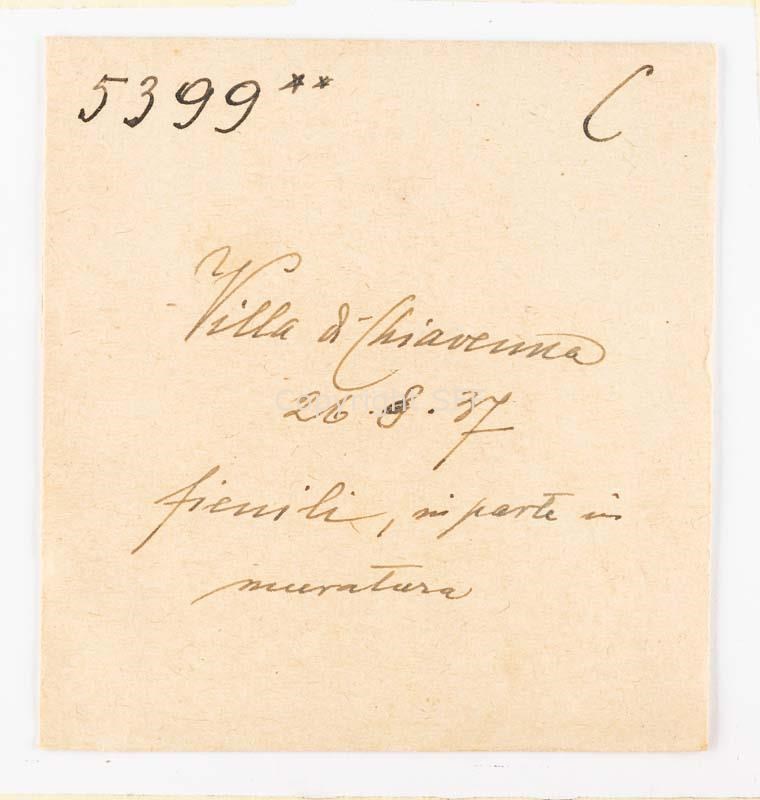 5399** C
Villa di Chiavenna
26.8.37
fienili, in parte in
muratura